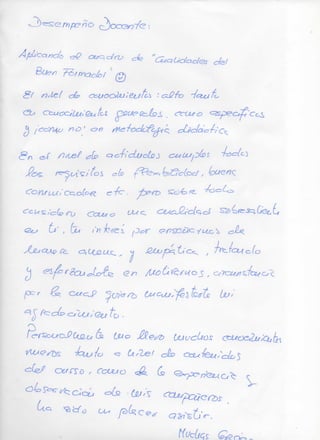 Desempeño Docente:
Aplicando el cuadro de "Cualidades del
Buen Formador"
El nivel de conocimientos: alto tanto
en conocimientos generales, como específicos
y ¡como no! en metodología didáctica
En el nivel de actitudes cumples todos
los requisitos de flexibilidad, buena
comunicadora etc. pero sobre todo
considero como una cualidad sobresaliente
en ti, tu interés por enseñarnos de
manera amena, y empática, tratando
y esforzandote en motivarnos, circunstancia
por la cual quiero manifestarte mi
agradecimiento.
Personalmente me llevo muchos conocimientos
nuevos tanto a nivel de contenidos
del curso, como de la experiencia y
observación de mis compañeros.
Ha sido un placer asistir.
Muchas Gracias